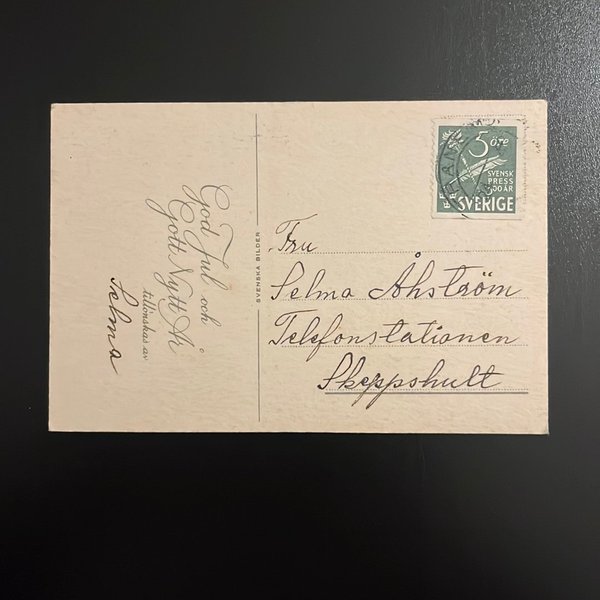 God Jul och
Gott Nytt År
tillönskas av
Selma
SVENSKA BILDER
5 öre
SVENSK
PRESS
300 ÅR
SVERIGE
Fru
Selma Åhström
Telefonstationen
Skeppshult